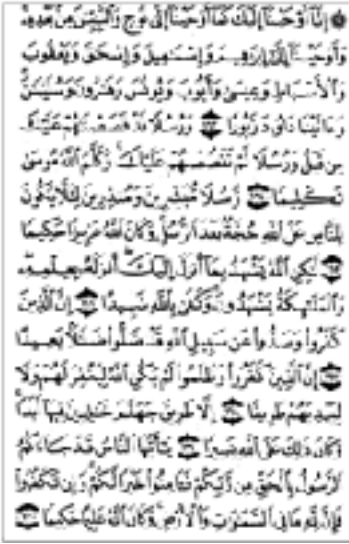 ۞ إِنَّا أَوْحَيْنَا إِلَيْكَ كَمَا أَوْحَيْنَا إِلَىٰ نُوحٍ وَالنَّبِيِّـۧنَ مِنْ بَعْدِهِ
وَأَوْحَيْنَا إِلَىٰ إِبْرَٰهِيمَ وَإِسْمَٰعِيلَ وَإِسْحَٰقَ وَيَعْقُوبَ
وَالْأَسْبَاطِ وَعِيسَىٰ وَأَيُّوبَ وَيُونُسَ وَهَٰرُونَ وَسُلَيْمَٰنَ
وَءَاتَيْنَا دَاوُۥدَ زَبُورًا ۝ وَرُسُلًا قَدْ قَصَصْنَٰهُمْ عَلَيْكَ
مِن قَبْلُ وَرُسُلًا لَّمْ نَقْصُصْهُمْ عَلَيْكَ وَكَلَّمَ اللَّهُ مُوسَىٰ
تَكْلِيمًا ۝ رُّسُلًا مُّبَشِّرِينَ وَمُنذِرِينَ لِئَلَّا يَكُونَ
لِلنَّاسِ عَلَى اللَّهِ حُجَّةٌ بَعْدَ الرُّسُلِ وَكَانَ اللَّهُ عَزِيزًا حَكِيمًا
۝ لَّٰكِنِ اللَّهُ يَشْهَدُ بِمَا أَنزَلَ إِلَيْكَ أَنزَلَهُ بِعِلْمِهِ
وَالْمَلَٰئِكَةُ يَشْهَدُونَ وَكَفَىٰ بِاللَّهِ شَهِيدًا ۝ إِنَّ الَّذِينَ
كَفَرُوا وَصَدُّوا عَن سَبِيلِ اللَّهِ قَدْ ضَلُّوا ضَلَٰلًا بَعِيدًا
۝ إِنَّ الَّذِينَ كَفَرُوا وَظَلَمُوا لَمْ يَكُنِ اللَّهُ لِيَغْفِرَ لَهُمْ وَلَا
لِيَهْدِيَهُمْ طَرِيقًا ۝ إِلَّا طَرِيقَ جَهَنَّمَ خَٰلِدِينَ فِيهَا أَبَدًا
وَكَانَ ذَٰلِكَ عَلَى اللَّهِ يَسِيرًا ۝ يَٰأَيُّهَا النَّاسُ قَدْ جَاءَكُمُ
الرَّسُولُ بِالْحَقِّ مِن رَّبِّكُمْ فَـَٔامِنُوا خَيْرًا لَّكُمْ وَإِن تَكْفُرُوا
فَإِنَّ لِلَّهِ مَا فِي السَّمَٰوَٰتِ وَالْأَرْضِ وَكَانَ اللَّهُ عَلِيمًا حَكِيمًا ۝